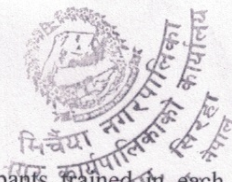 मिर्चैया नगरपालिका
नगर कार्यपालिकाको कार्यालय
सिरहा
नेपाल
pants trained in each